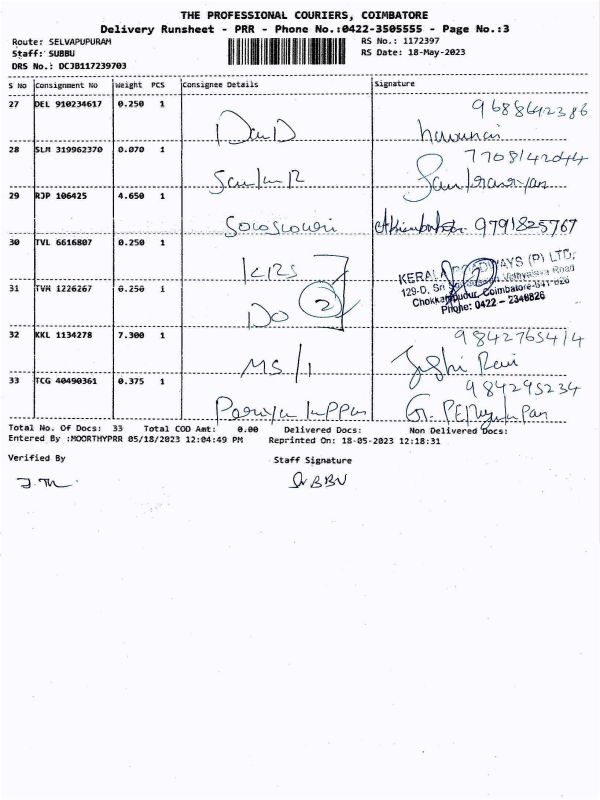 THE PROFESSIONAL COURIERS, COIMBATORE
Delivery Runsheet - PRR - Phone No.:0422-3505555 - Page No.:3
Route: SELVAPUPURAM
RS No.: 1172397
Staff: SUBBU
RS Date: 18-May-2023
DRS No.: DCJB117239703
S No Consignment No Weight PCS Consignee Details Signature
27 DEL 910234617 0.250 1
9688642386
28 SLM 319962370 0.070 1
7708142044
29 RJP 106425 4.650 1
9791825767
30 TVL 6616807 0.250 1
KRS
KERALA ROADWAYS (P) LTD,
Coimbatore-641 026
Phone: 0422 - 2346826
31 TVM 1226267 0.250 1
DO 2
32 KKL 1134278 7.300 1
MS/1
9842765414
Joshi Ravi
33 TCG 40490361 0.375 1
984295234
Total No. Of Docs: 33 Total COD Amt: 0.00 Delivered Docs: Non Delivered Docs:
Entered By :MOORTHYPRR 05/18/2023 12:04:49 PM Reprinted On: 18-05-2023 12:18:31
Verified By Staff Signature
SUBBU